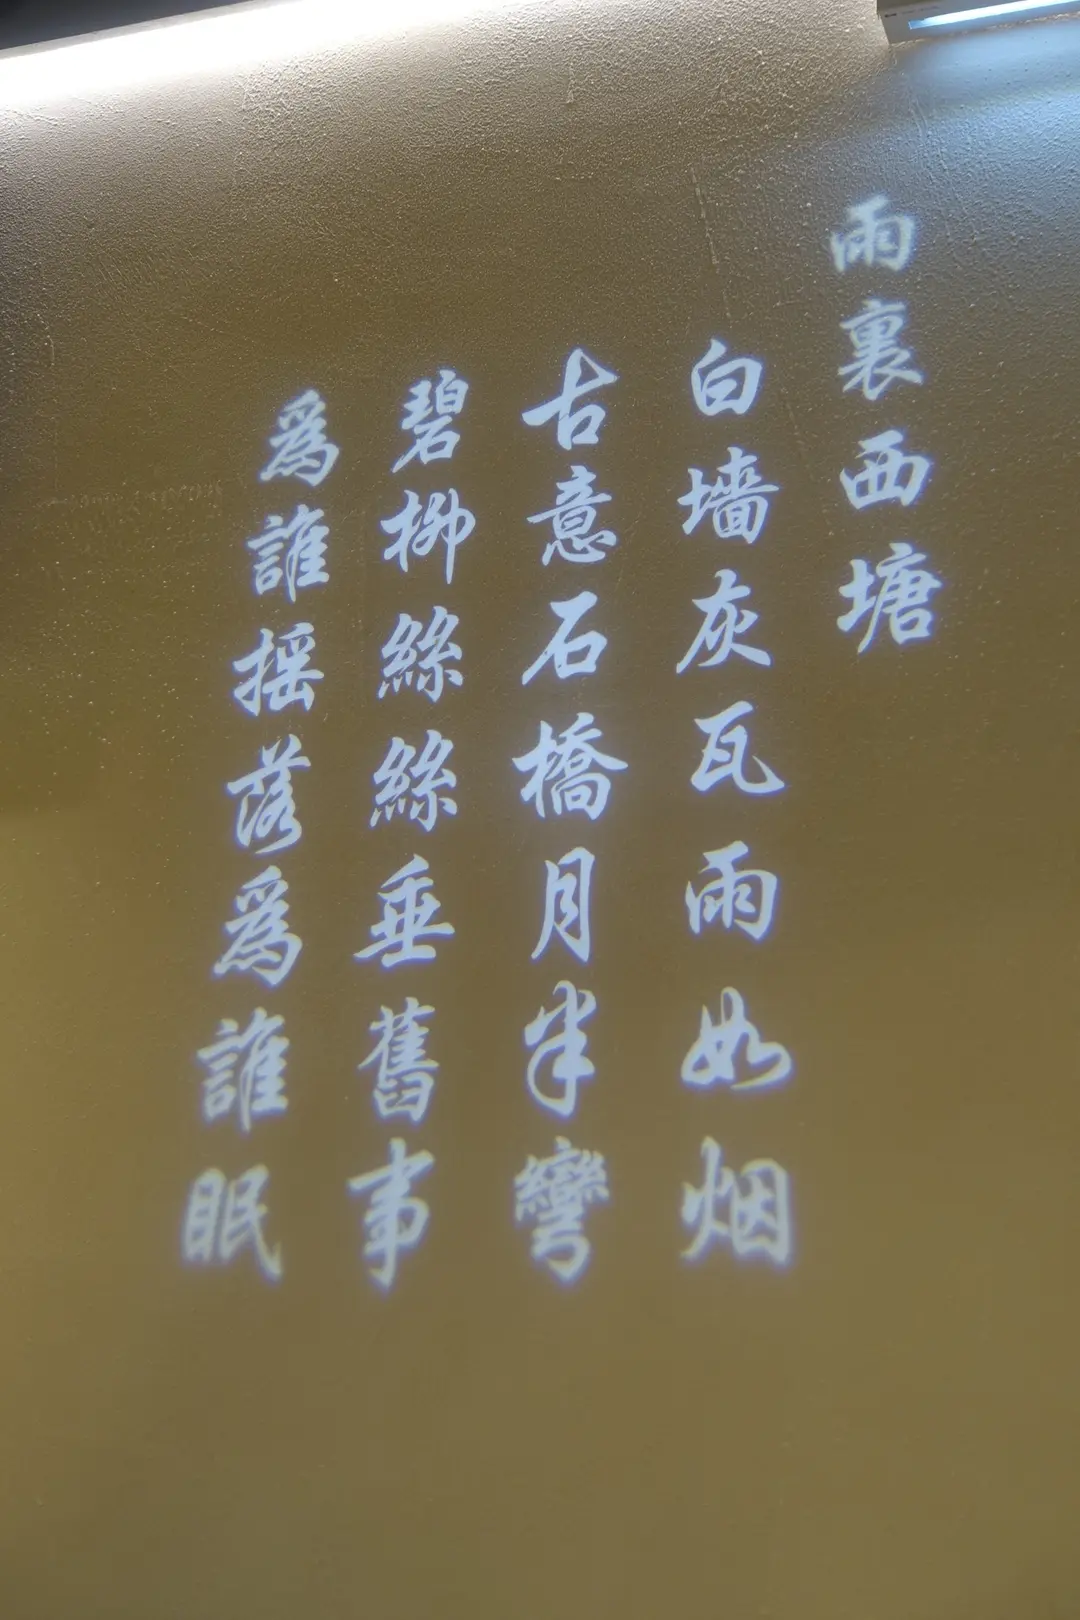 雨裏西塘
白墻灰瓦雨如烟
古意石橋月半彎
碧柳絲絲垂舊事
爲誰摇落爲誰眠